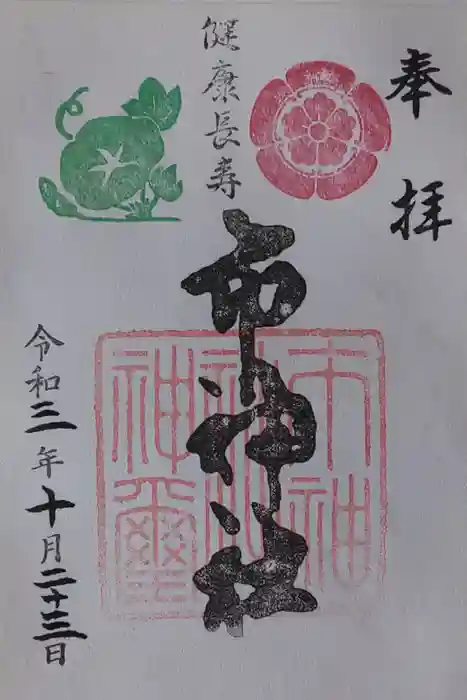 奉拝
健康長寿
市神社
市神
神璽
令和三年十月二十三日